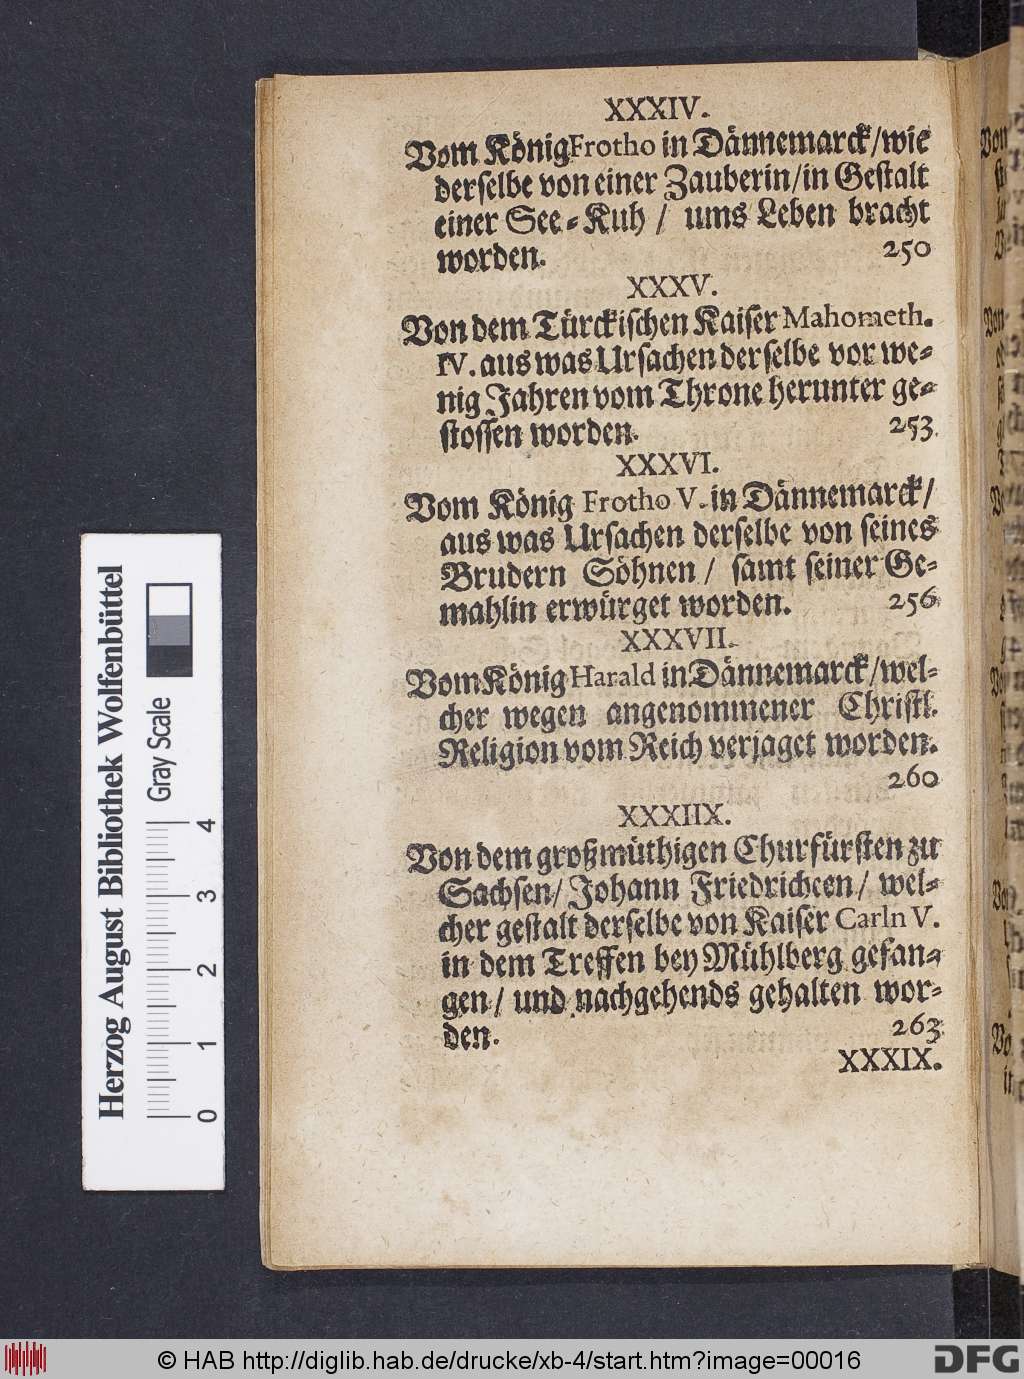 XXXIV.
Vom König Frotho in Dännemarck/wie
derselbe von einer Zauberin/in Gestalt
einer See-Kuh / ums Leben bracht
worden. 250
XXXV.
Von dem Türckischen Kaiser Mahometh.
IV. aus was Ursachen derselbe vor we-
nig Jahren vom Throne herunter ge-
stossen worden. 253.
XXXVI.
Vom König Frotho V. in Dännemarck/
aus was Ursachen derselbe von seines
Brudern Söhnen / samt seiner Ge-
mahlin erwürget worden. 256.
XXXVII.
Vom König Harald in Dännemarck/wel-
cher wegen angenommener Christl.
Religion vom Reich verjaget worden.
260
XXXIIX.
Von dem großmüthigen Churfürsten zu
Sachsen/ Johann Friedricheen/ wel-
cher gestalt derselbe von Kaiser Carln V.
in dem Treffen bey Mühlberg gefan-
gen/ und nachgehends gehalten wor-
den. 263.
XXXIX.
Herzog August Bibliothek Wolfenbüttel
Gray Scale
0 1 2 3 4
© HAB http://diglib.hab.de/drucke/xb-4/start.htm?image=00016
DFG